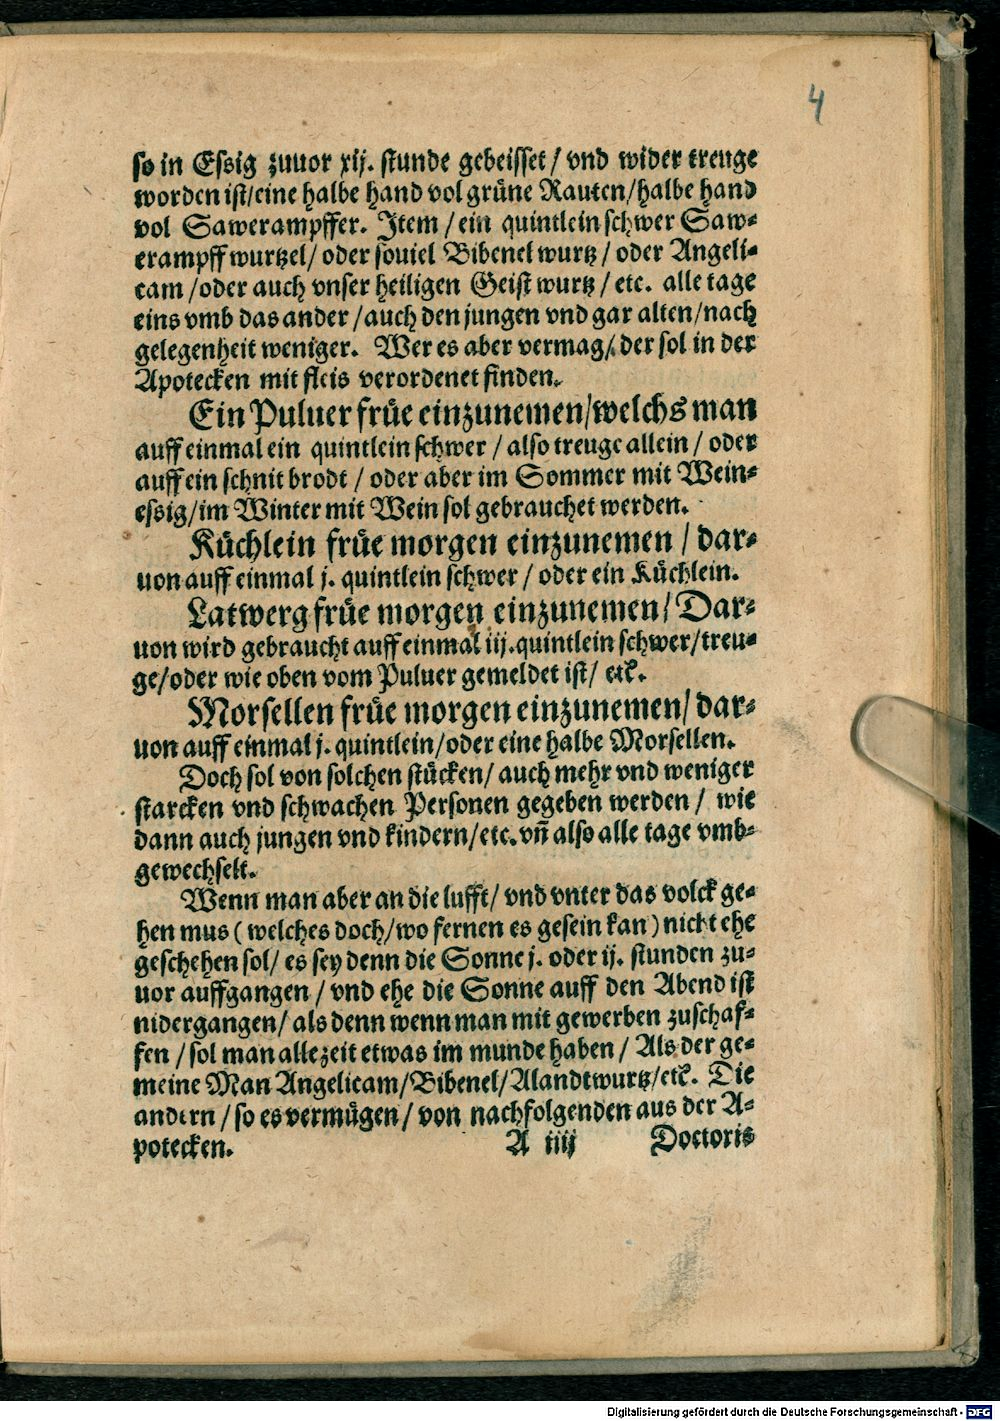 4
so in Essig zuuor xij. stunde gebeisset / vnd wider treuge
worden ist/eine halbe hand vol grüne Rauten/halbe hand
vol Sawerampffer. Item / ein quintlein schwer Saw-
erampff wurtzel/ oder souiel Bibenel wurtz / oder Angeli-
cam /oder auch vnser heiligen Geist wurtz / etc. alle tage
eins vmb das ander /auch den jungen vnd gar alten/nach
gelegenheit weniger. Wer es aber vermag/ der sol in der
Apotecken mit fleis verordenet finden.
Ein Puluer früe einzunemen/welchs man
auff einmal ein quintlein schwer / also treuge allein / oder
auff ein schnit brodt / oder aber im Sommer mit Wein-
essig/im Winter mit Wein sol gebrauchet werden.
Küchlein früe morgen einzunemen / dar-
uon auff einmal j. quintlein schwer / oder ein Küchlein.
Latwerg früe morgen einzunemen/ Dar-
uon wird gebraucht auff einmal iij.quintlein schwer/treu-
ge/oder wie oben vom Puluer gemeldet ist/ etc.
Morsellen früe morgen einzunemen/ dar-
uon auff einmal j. quintlein/oder eine halbe Morsellen.
Doch sol von solchen stücken/ auch mehr vnd weniger
starcken vnd schwachen Personen gegeben werden / wie
dann auch jungen vnd kindern/etc.vñ also alle tage vmb-
gewechselt.
Wenn man aber an die lufft/ vnd vnter das volck ge-
hen mus ( welches doch/wo fernen es gesein kan ) nicht ehe
geschehen sol/ es sey denn die Sonne j. oder ij. stunden zu-
uor auffgangen / vnd ehe die Sonne auff den Abend ist
nidergangen/ als denn wenn man mit gewerben zuschaf-
fen /sol man allezeit etwas im munde haben / Als der ge-
meine Man Angelicam/Bibenel/Alandtwurtz/etc. Die
andern /so es vermügen/ von nachfolgenden aus der A-
potecken. A iiij Doctoris
Digitalisierung gefördert durch die Deutsche Forschungsgemeinschaft - DFG